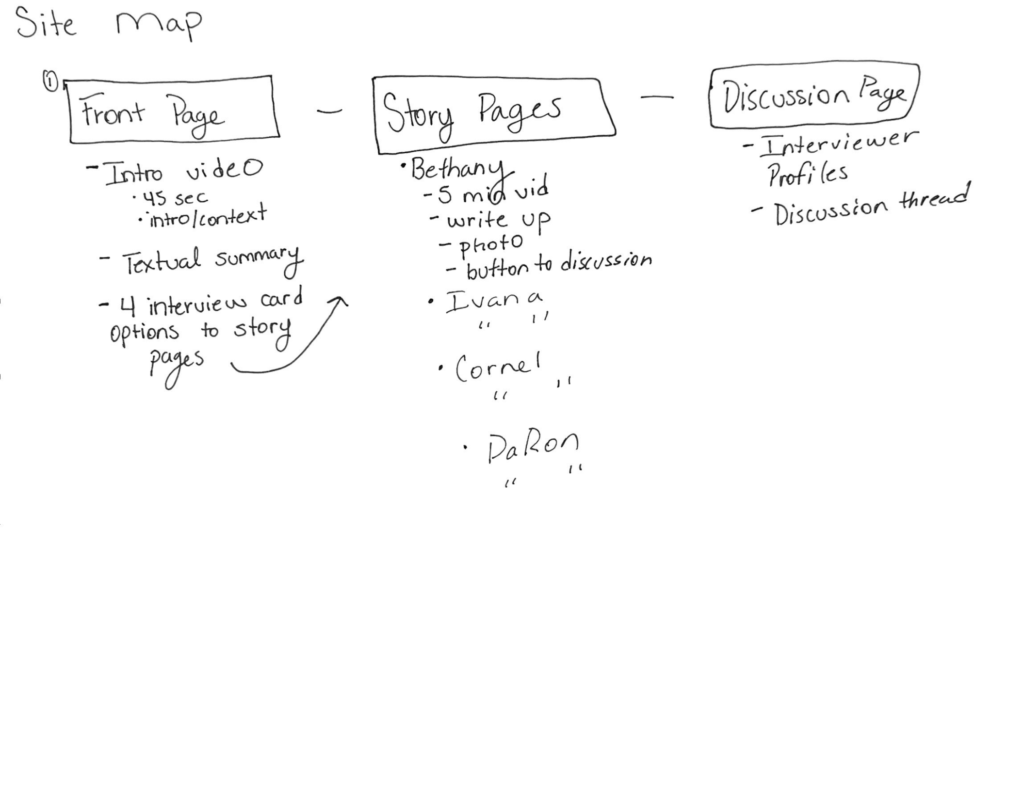 Site Map
①
Front Page
- Intro video
• 45 sec
• intro/context
- Textual summary
- 4 interview card
options to story
pages
Story Pages
• Bethany
- 5 min vid
- write up
- photo
- button to discussion
• Ivana
" "
• Cornel
" "
• DaRon
" "
Discussion Page
- Interviewer
Profiles
- Discussion thread